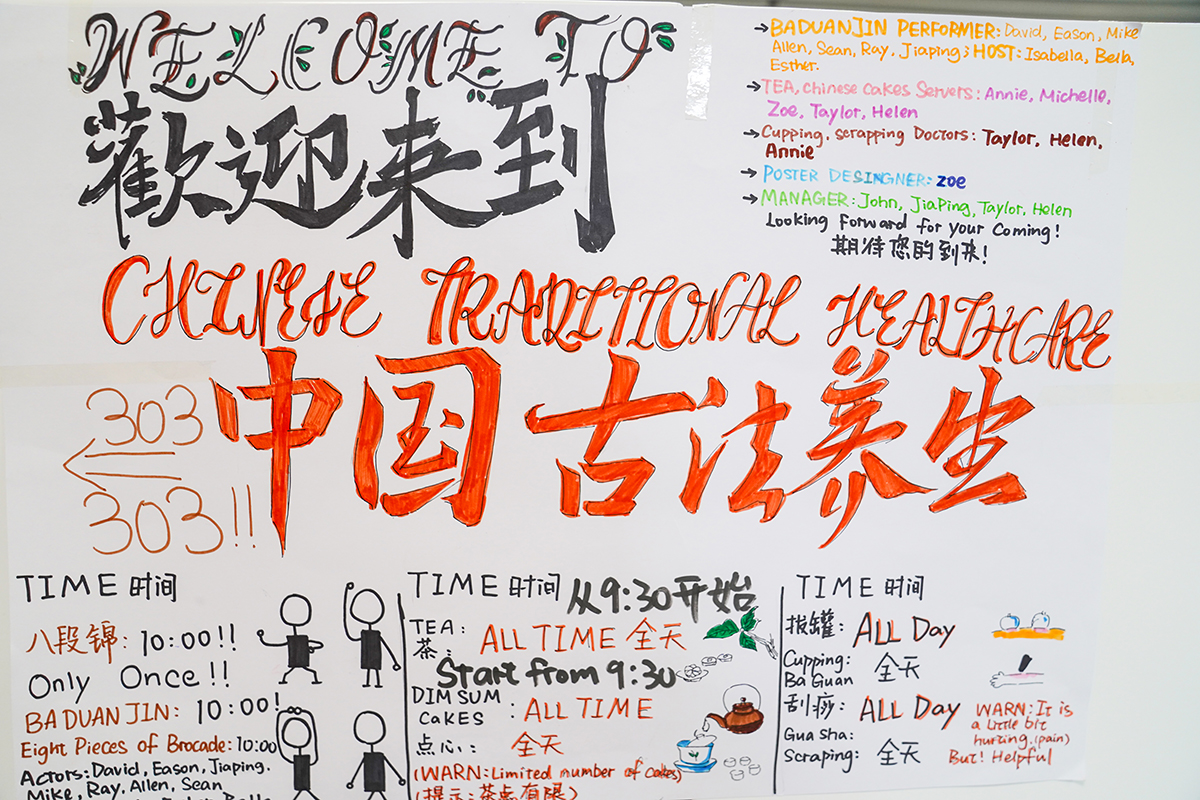 WELCOME TO
歡迎来到
→BADUANJIN PERFORMER: David, Eason, Mike
Allen, Sean, Ray, Jiaping; HOST: Isabella, Bella,
Esther.
→TEA, Chinese Cakes Servers: Annie, Michelle,
Zoe, Taylor, Helen
→Cupping, scrapping Doctors: Taylor, Helen,
Annie
→POSTER DESINGNER: zoe
→MANAGER: John, JiaPing, Taylor, Helen
Looking forward for your Coming!
期待您的到来!
CHINESE TRADITIONAL HEALTHCARE
中国古法养生
303
←
303!!
TIME 时间
八段锦: 10:00!!
Only Once!!
BADUANJIN: 10:00!
Eight Pieces of Brocade: 10:00
Actors: David, Eason, Jiaping.
Mike, Ray, Allen, Sean
TIME 时间 从9:30开始
TEA:
茶: ALL TIME 全天
Start from 9:30
DIM SUM
CAKES : ALL TIME
点心: 全天
(WARN: Limited number of Cakes)
(提示:茶点有限)
TIME 时间
拔罐: ALL Day
Cupping: 全天
Ba Guan
刮痧: ALL Day
Gua Sha:
Scraping: 全天
WARN: It is
a little bit
hurting. (pain)
But! Helpful